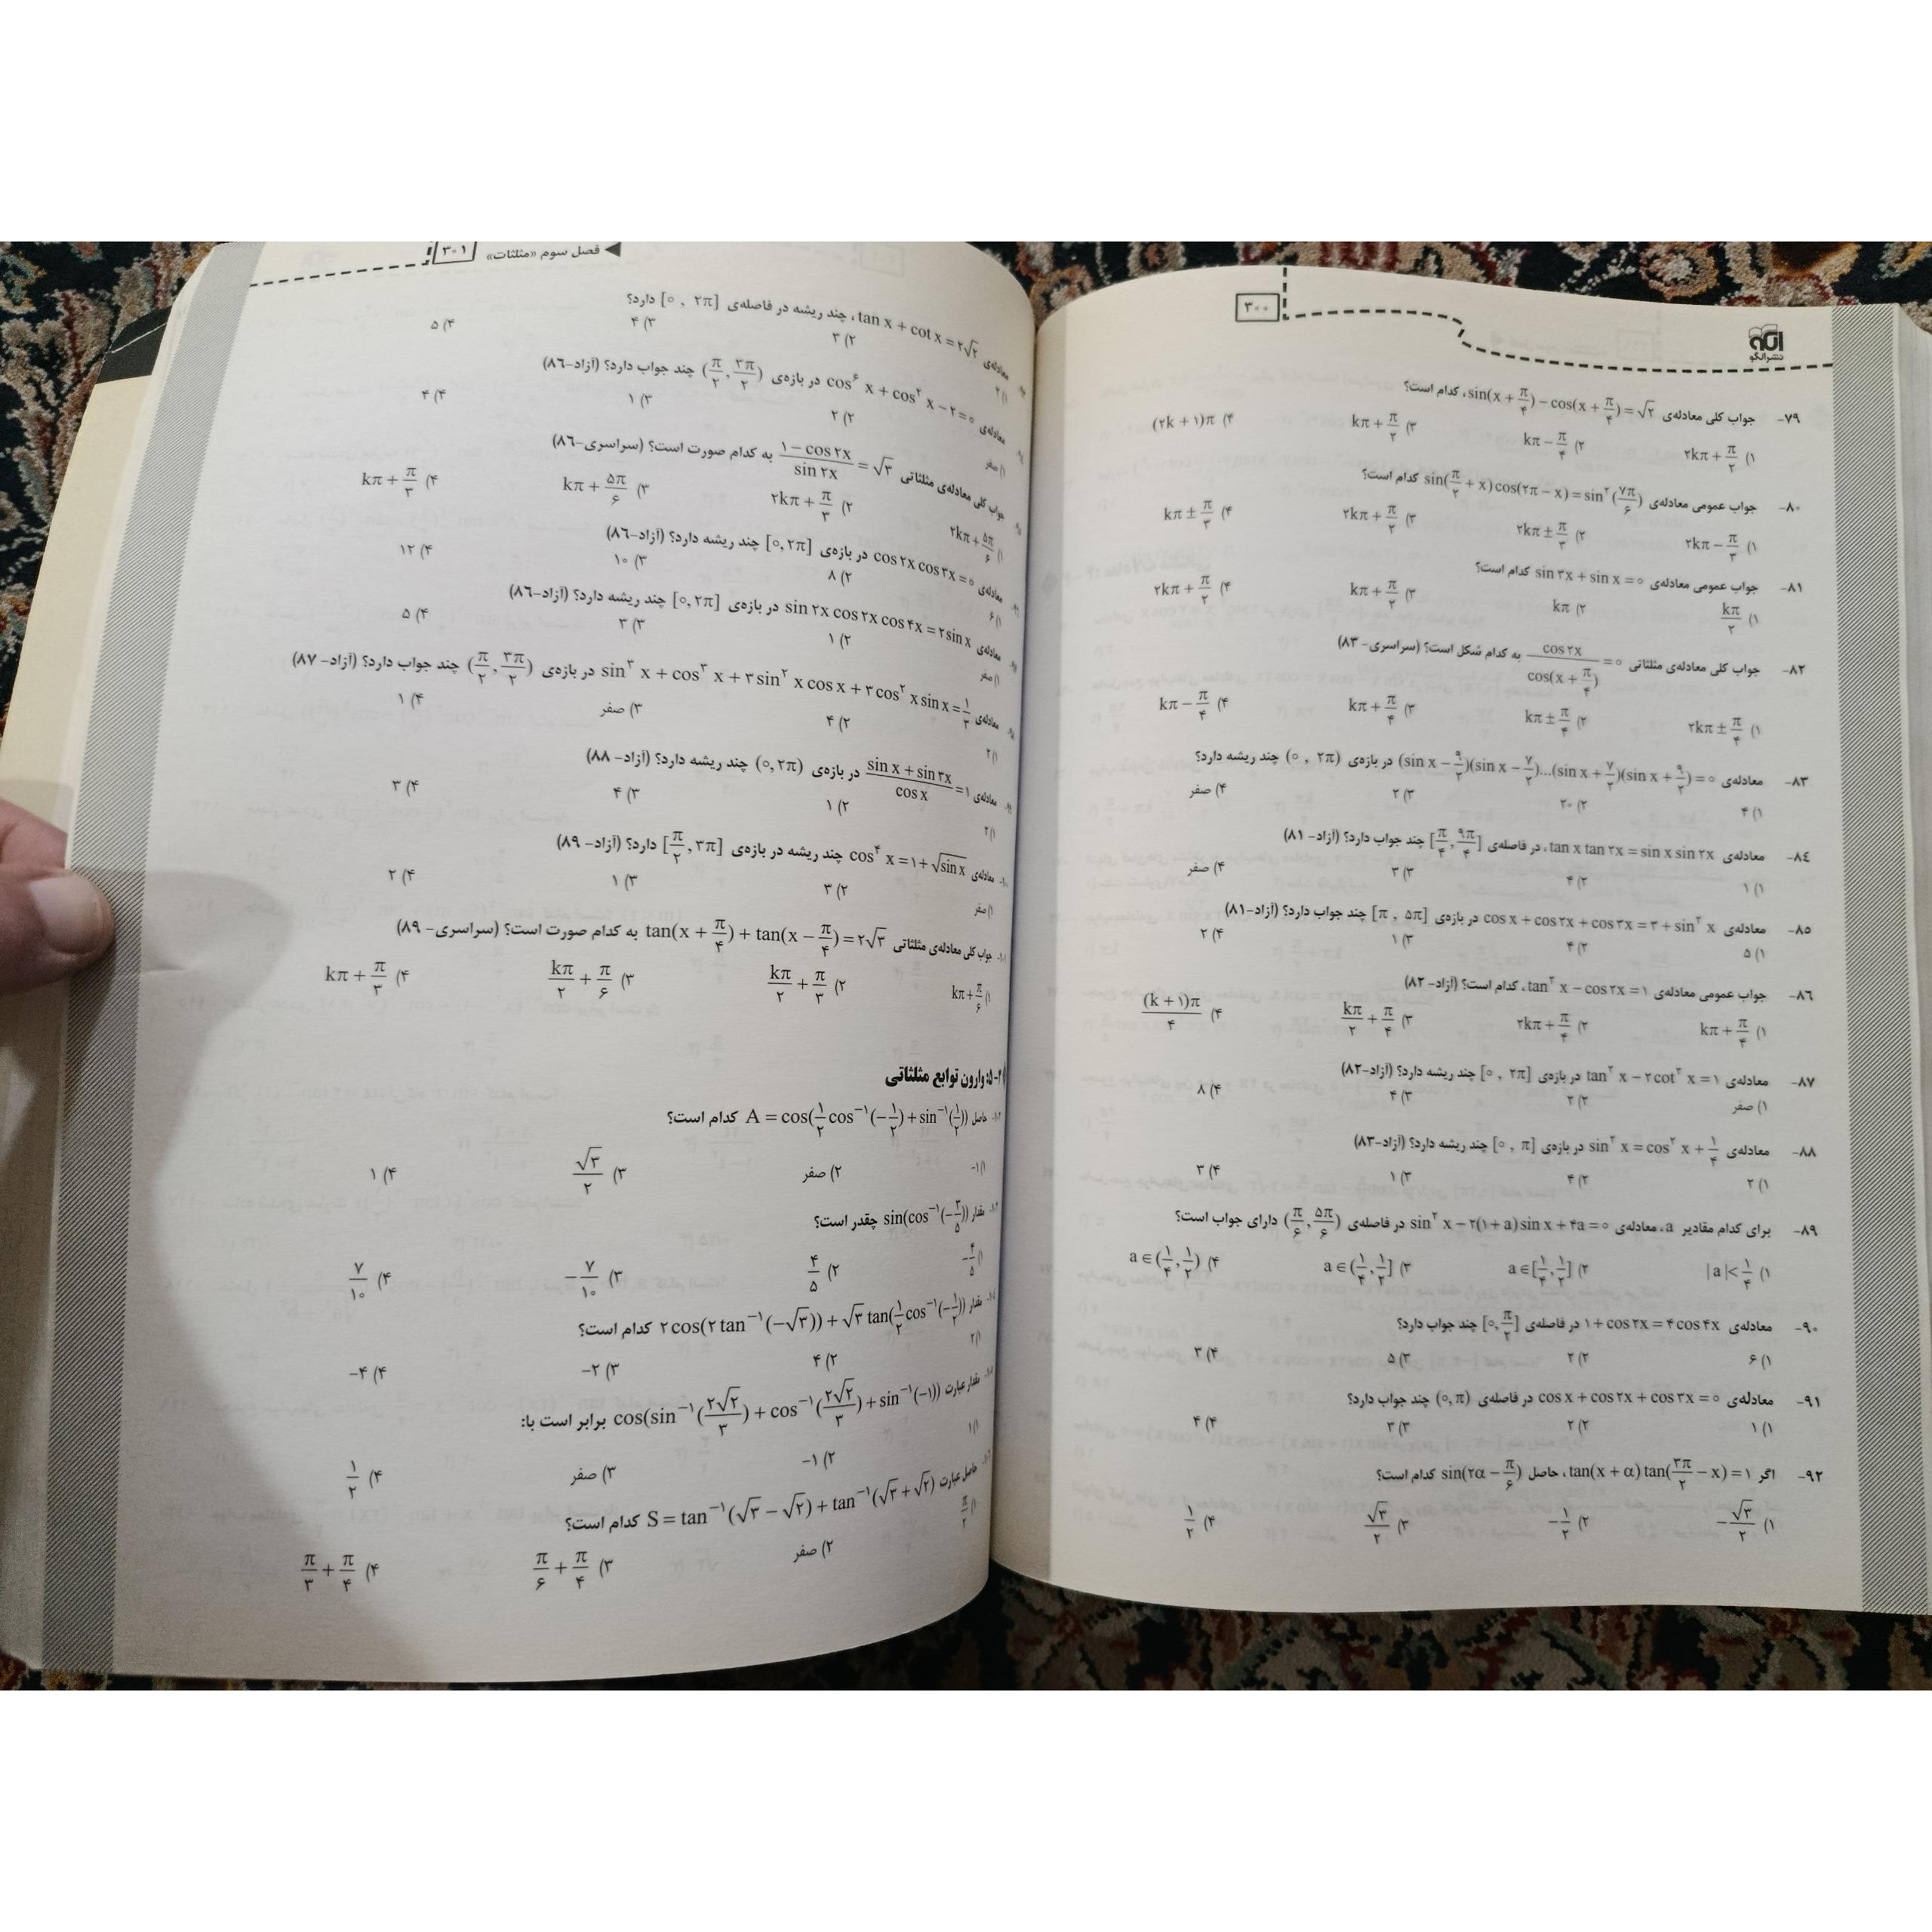 ۳۰۰
نشر الگو
۷۹- جواب کلی معادله‌ی sin(x + π/۴) − cos(x + π/۴) = √۲، کدام است؟
۱) ۲kπ + π/۲ ۲) kπ − π/۴ ۳) kπ + π/۲ ۴) (۲k + ۱)π
۸۰- جواب عمومی معادله‌ی sin(π/۲ + x) cos(۲π − x) = sin²(۷π/۶) کدام است؟
۱) ۲kπ − π/۳ ۲) ۲kπ ± π/۳ ۳) ۲kπ + π/۲ ۴) kπ ± π/۳
۸۱- جواب عمومی معادله‌ی sin ۳x + sin x = ۰ کدام است؟
۱) kπ/۲ ۲) kπ ۳) kπ + π/۲ ۴) ۲kπ + π/۲
۸۲- جواب کلی معادله‌ی مثلثاتی cos ۲x / cos(x + π/۴) = ۰ به کدام شکل است؟ (سراسری- ۸۳)
۱) ۲kπ ± π/۴ ۲) kπ ± π/۴ ۳) kπ + π/۴ ۴) kπ − π/۴
۸۳- معادله‌ی (sin x − ۹/۲)(sin x − ۷/۲)...(sin x + ۷/۲)(sin x + ۹/۲) = ۰ در بازه‌ی (۰ , ۲π) چند ریشه دارد؟
۱) ۴ ۲) ۲۰ ۳) ۲ ۴) صفر
۸۴- معادله‌ی tan x tan ۲x = sin x sin ۲x، در فاصله‌ی [π/۴, ۹π/۴] چند جواب دارد؟ (آزاد- ۸۱)
۱) ۱ ۲) ۴ ۳) ۳ ۴) صفر
۸۵- معادله‌ی cos x + cos ۲x + cos ۳x = ۳ + sin² x در بازه‌ی [π , ۵π] چند جواب دارد؟ (آزاد-۸۱)
۱) ۵ ۲) ۴ ۳) ۱ ۴) ۲
۸۶- جواب عمومی معادله‌ی tan² x − cos ۲x = ۱، کدام است؟ (آزاد- ۸۲)
۱) kπ + π/۴ ۲) ۲kπ + π/۴ ۳) kπ/۲ + π/۴ ۴) (k + ۱)π/۴
۸۷- معادله‌ی tan² x − ۲cot² x = ۱ در بازه‌ی [۰ , ۲π] چند ریشه دارد؟ (آزاد-۸۲)
۱) صفر ۲) ۲ ۳) ۴ ۴) ۸
۸۸- معادله‌ی sin² x = cos² x + ۱/۴ در بازه‌ی [۰ , π] چند ریشه دارد؟ (آزاد-۸۳)
۱) ۲ ۲) ۴ ۳) ۱ ۴) ۳
۸۹- برای کدام مقادیر a، معادله‌ی sin² x − ۲(۱+a) sin x + ۴a = ۰ در فاصله‌ی (π/۶, ۵π/۶) دارای جواب است؟
۱) |a| < ۱/۴ ۲) a ∈ [۱/۴, ۱/۲] ۳) a ∈ (۱/۴, ۱/۲] ۴) a ∈ (۱/۴, ۱/۲)
۹۰- معادله‌ی ۱ + cos ۲x = ۴ cos ۴x در فاصله‌ی [۰, π/۲] چند جواب دارد؟
۱) ۶ ۲) ۲ ۳) ۵ ۴) ۳
۹۱- معادله‌ی cos x + cos ۲x + cos ۳x = ۰ در فاصله‌ی (۰, π) چند جواب دارد؟
۱) ۱ ۲) ۲ ۳) ۳ ۴) ۴
۹۲- اگر tan(x + α) tan(۳π/۲ − x) = ۱، حاصل sin(۲α − π/۶) کدام است؟
۱) −√۳/۲ ۲) −۱/۲ ۳) √۳/۲ ۴) ۱/۲
فصل سوم «مثلثات» ۳۰۱
معادله‌ی tan x + cot x = ۲√۲، چند ریشه در فاصله‌ی [۰ , ۲π] دارد؟
۱) ۲ ۲) ۳ ۳) ۴ ۴) ۵
معادله‌ی cos⁶ x + cos² x − ۲ = ۰ در بازه‌ی (π/۲, ۳π/۲) چند جواب دارد؟ (آزاد-۸۶)
۱) صفر ۲) ۲ ۳) ۱ ۴) ۴
جواب کلی معادله‌ی مثلثاتی (۱ − cos ۲x)/sin ۲x = √۳ به کدام صورت است؟ (سراسری-۸۶)
۱) ۲kπ + ۵π/۶ ۲) ۲kπ + π/۳ ۳) kπ + ۵π/۶ ۴) kπ + π/۳
معادله‌ی cos ۲x cos ۳x = ۰ در بازه‌ی [۰, ۲π] چند ریشه دارد؟ (آزاد-۸۶)
۱) ۶ ۲) ۸ ۳) ۱۰ ۴) ۱۲
معادله‌ی sin ۲x cos ۲x cos ۴x = ۲ sin x در بازه‌ی [۰, ۲π] چند ریشه دارد؟ (آزاد-۸۶)
۱) صفر ۲) ۱ ۳) ۳ ۴) ۵
معادله‌ی sin³ x + cos³ x + ۳ sin² x cos x + ۳ cos² x sin x = ۱/۳ در بازه‌ی (π/۲, ۳π/۲) چند جواب دارد؟ (آزاد- ۸۷)
۱) ۲ ۲) ۴ ۳) صفر ۴) ۱
معادله‌ی (sin x + sin ۳x)/cos x = ۱ در بازه‌ی (۰, ۲π) چند ریشه دارد؟ (آزاد- ۸۸)
۱) ۲ ۲) ۱ ۳) ۴ ۴) ۳
معادله‌ی cos⁴ x = ۱ + √sin x چند ریشه در بازه‌ی [π/۲, ۳π] دارد؟ (آزاد- ۸۹)
۱) صفر ۲) ۳ ۳) ۱ ۴) ۲
جواب کلی معادله‌ی مثلثاتی tan(x + π/۴) + tan(x − π/۴) = ۲√۳ به کدام صورت است؟ (سراسری- ۸۹)
۱) kπ + π/۶ ۲) kπ/۲ + π/۳ ۳) kπ/۲ + π/۶ ۴) kπ + π/۳
۵-۲: وارون توابع مثلثاتی
حاصل A = cos(۱/۲ cos⁻¹(−۱/۲) + sin⁻¹(۱/۲)) کدام است؟
۱) −۱ ۲) صفر ۳) √۳/۲ ۴) ۱
مقدار sin(cos⁻¹(−۳/۵)) چقدر است؟
۱) −۴/۵ ۲) ۴/۵ ۳) −۷/۱۰ ۴) ۷/۱۰
مقدار ۲ cos(۲ tan⁻¹(−√۳)) + √۳ tan(۱/۲ cos⁻¹(−۱/۲)) کدام است؟
۱) ۲ ۲) ۴ ۳) −۲ ۴) −۴
مقدار عبارت cos(sin⁻¹(۲√۲/۳) + cos⁻¹(۲√۲/۳) + sin⁻¹(−۱)) برابر است با:
۱) ۱ ۲) −۱ ۳) صفر ۴) ۱/۲
حاصل عبارت S = tan⁻¹(√۳ − √۲) + tan⁻¹(√۳ + √۲) کدام است؟
۱) π/۲ ۲) صفر ۳) π/۶ + π/۴ ۴) π/۳ + π/۴